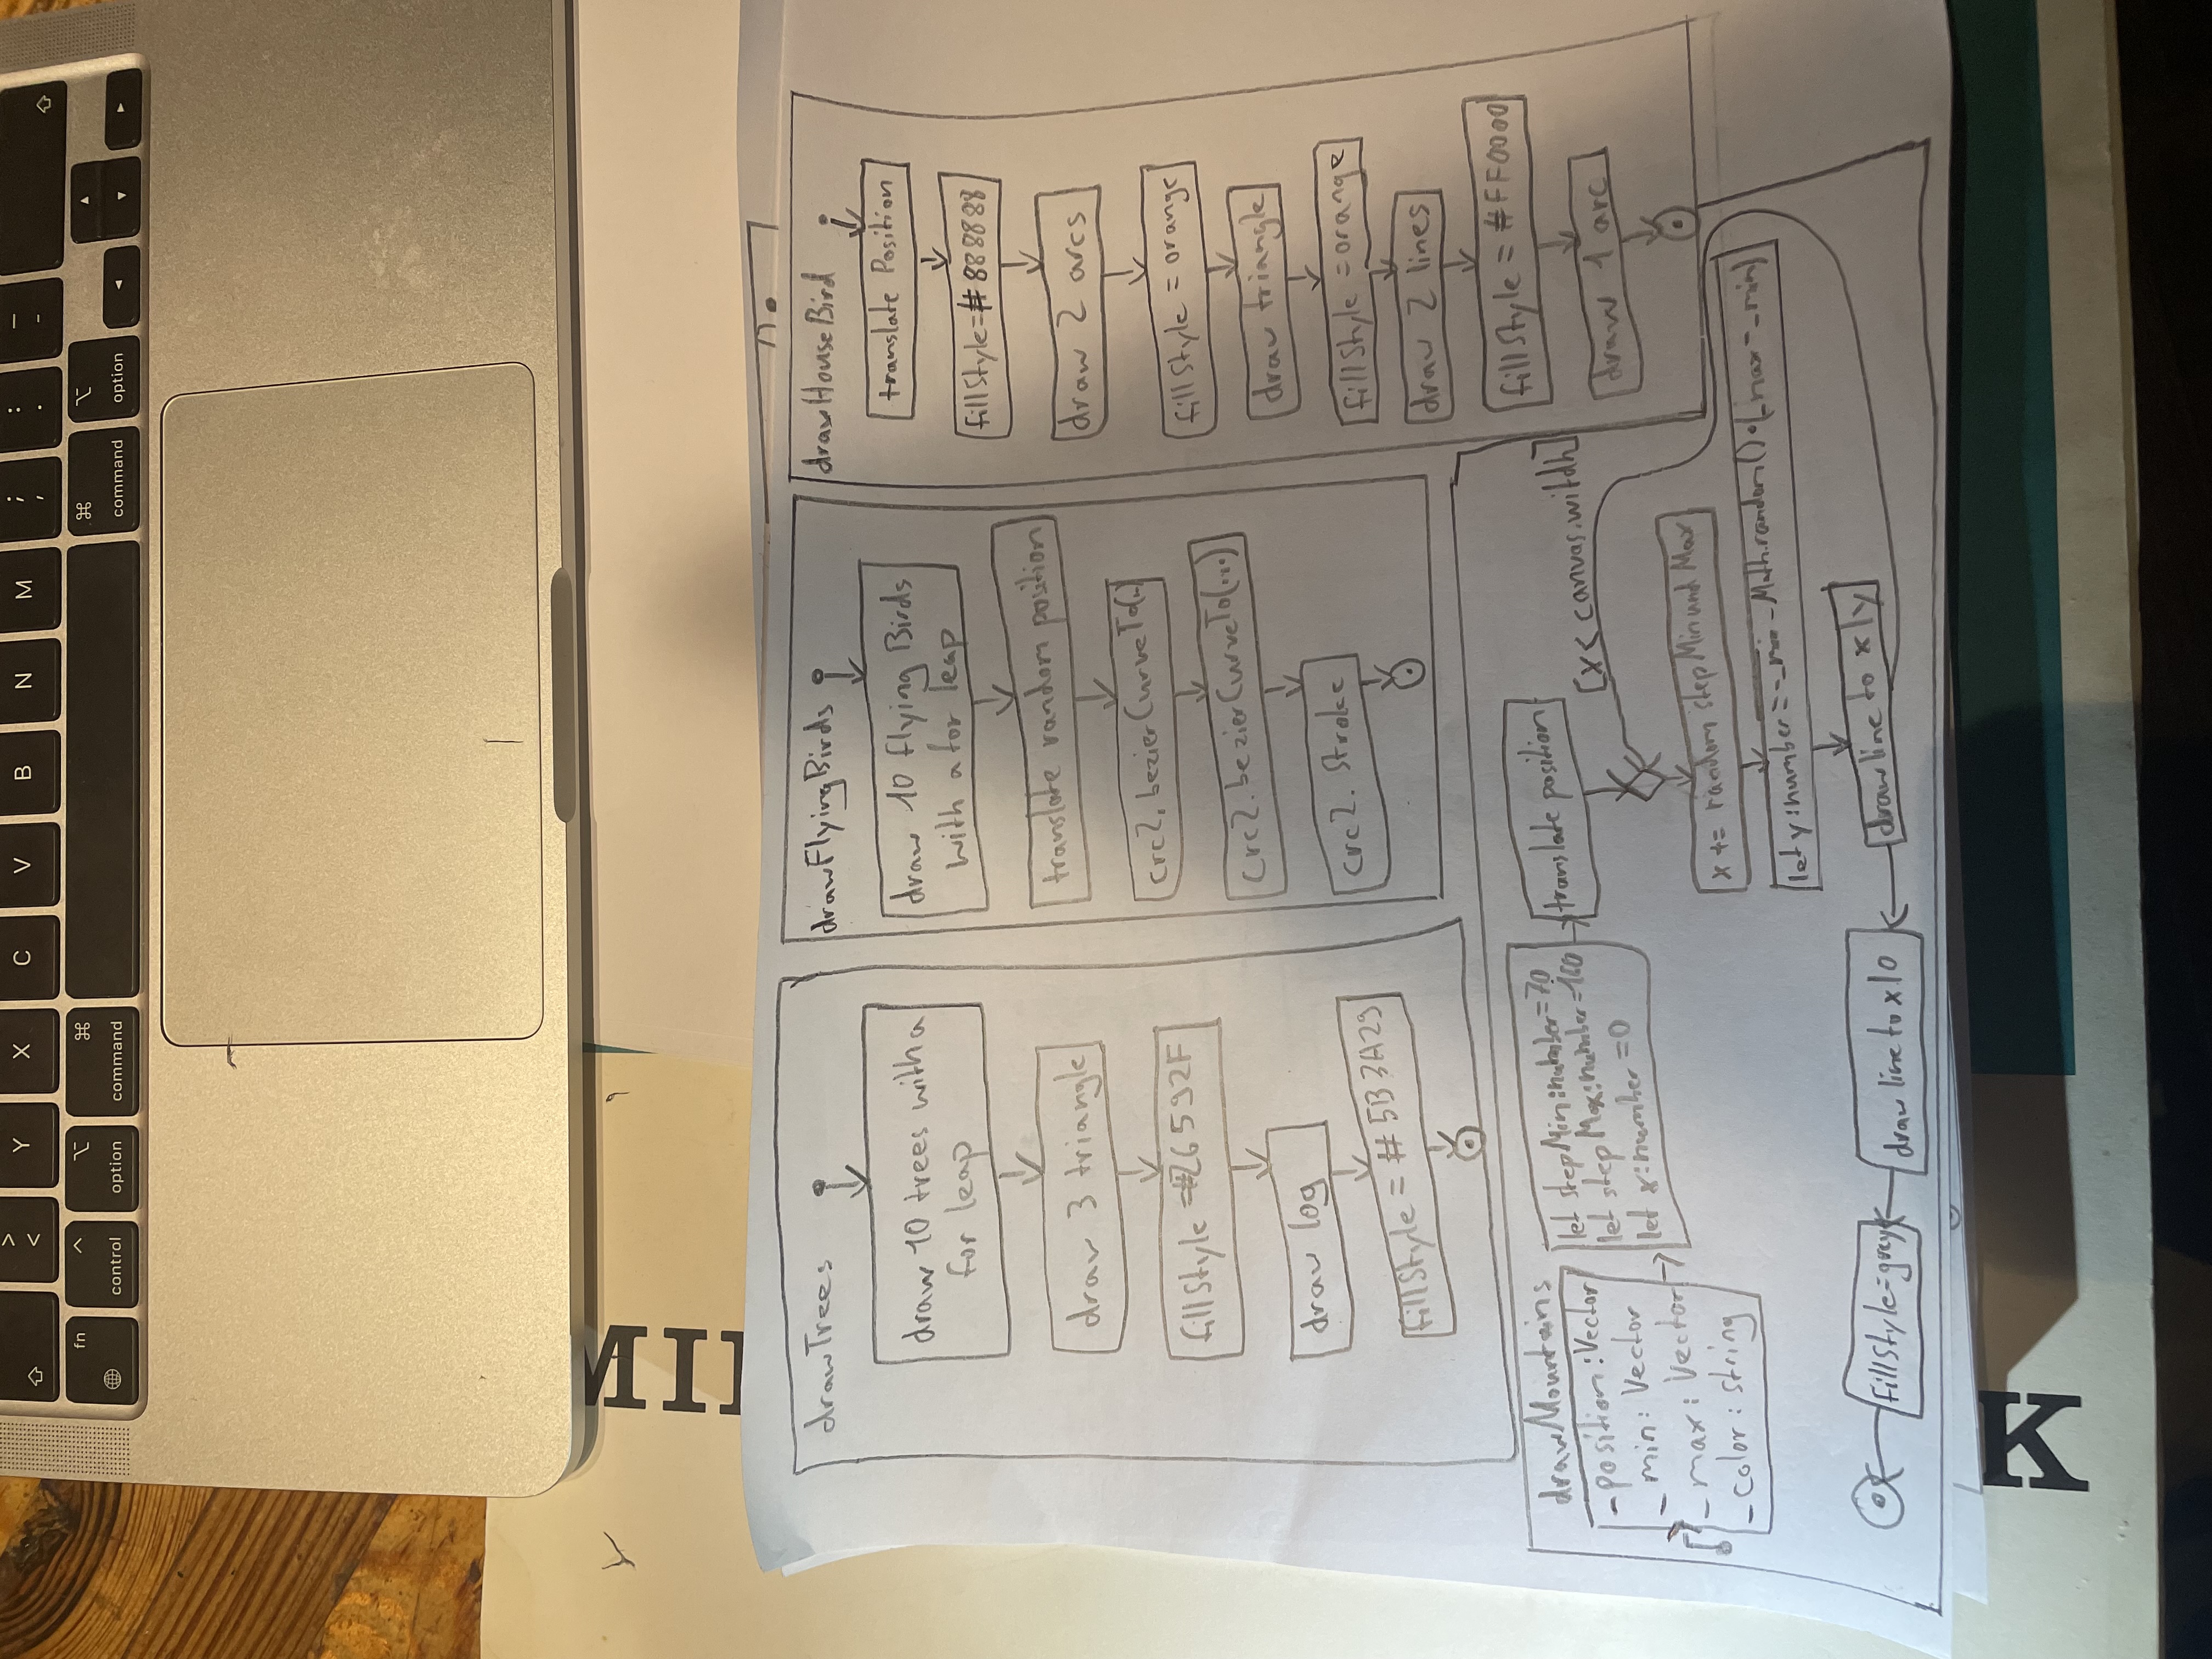 >
<
Y
X
C
V
B
N
M
;
,
:
.
_
-
fn
control
option
command
command
option
MII
drawTrees
draw 10 trees with a
for leap
draw 3 triangle
fillStyle =#26592F
draw log
fillStyle = #5B3A29
drawFlyingBirds
draw 10 flying Birds
with a for leap
translate random position
crc2. bezierCurveTo(..)
crc2. bezierCurveTo(...)
crc2. Stroke
drawHouseBird
translate Position
fillStyle=#888888
draw 2 arcs
fillStyle = orange
draw triangle
fillStyle = orange
draw 2 lines
fillStyle = #FF0000
draw 1 arc
drawMountains
_position:Vector
_min: Vector
_max: Vector
_color: string
let stepMin:number=70
let stepMax:number=160
let x:number=0
translate position
[x< canvas.witdh]
x += random stepMin und Max
let y:number = -_min - Math.random() * (_max - _min)
draw line to x|y
draw line to x|0
fillStyle=grey
K